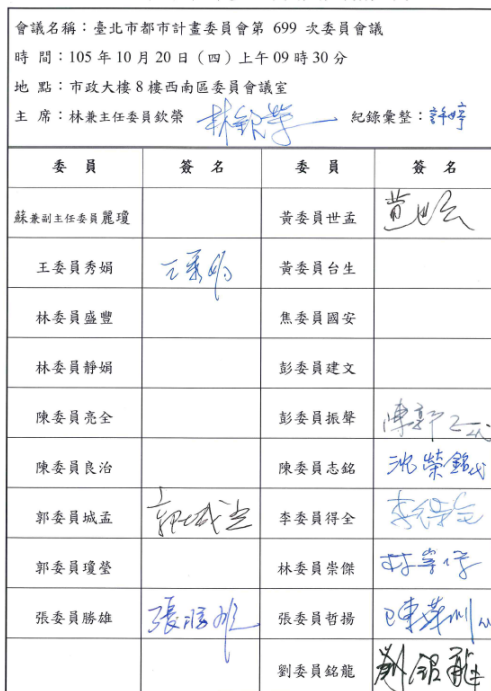 會議名稱：臺北市都市計畫委員會第 699 次委員會議
時 間：105 年 10 月 20 日（四）上午 09 時 30 分
地 點：市政大樓 8 樓西南區委員會議室
主 席：林兼主任委員欽榮 林欽榮 紀錄彙整：許婷
委 員 簽 名 委 員 簽 名
蘇兼副主任委員麗瓊 黃委員世孟 黃世孟
王委員秀娟 王秀娟 黃委員台生
林委員盛豐 焦委員國安
林委員靜娟 彭委員建文
陳委員亮全 彭委員振聲
陳委員良治 陳委員志銘 沈榮銘代
郭委員城孟 郭城孟 李委員得全 李得全
郭委員瓊瑩 林委員崇傑 林崇傑
張委員勝雄 張勝雄 張委員哲揚
劉委員銘龍 劉銘龍